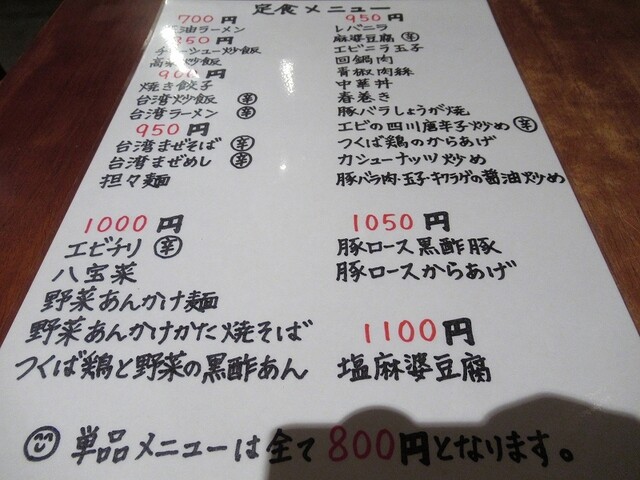 定食メニュー
700円
醤油ラーメン
850円
チャーシュー炒飯
高菜炒飯
900円
焼き餃子
台湾炒飯 辛
台湾ラーメン 辛
950円
台湾まぜそば 辛
台湾まぜめし 辛
担々麺
1000円
エビチリ 辛
八宝菜
野菜あんかけ麺
野菜あんかけかた焼そば
つくば鶏と野菜の黒酢あん
950円
レバニラ
麻婆豆腐 辛
エビニラ玉子
回鍋肉
青椒肉絲
中華丼
春巻き
豚バラしょうが焼
エビの四川唐辛子炒め 辛
つくば鶏のからあげ
カシューナッツ炒め
豚バラ肉・玉子・キクラゲの醤油炒め
1050円
豚ロース黒酢酢豚
豚ロースからあげ
1100円
塩麻婆豆腐
単品メニューは全て800円となります。